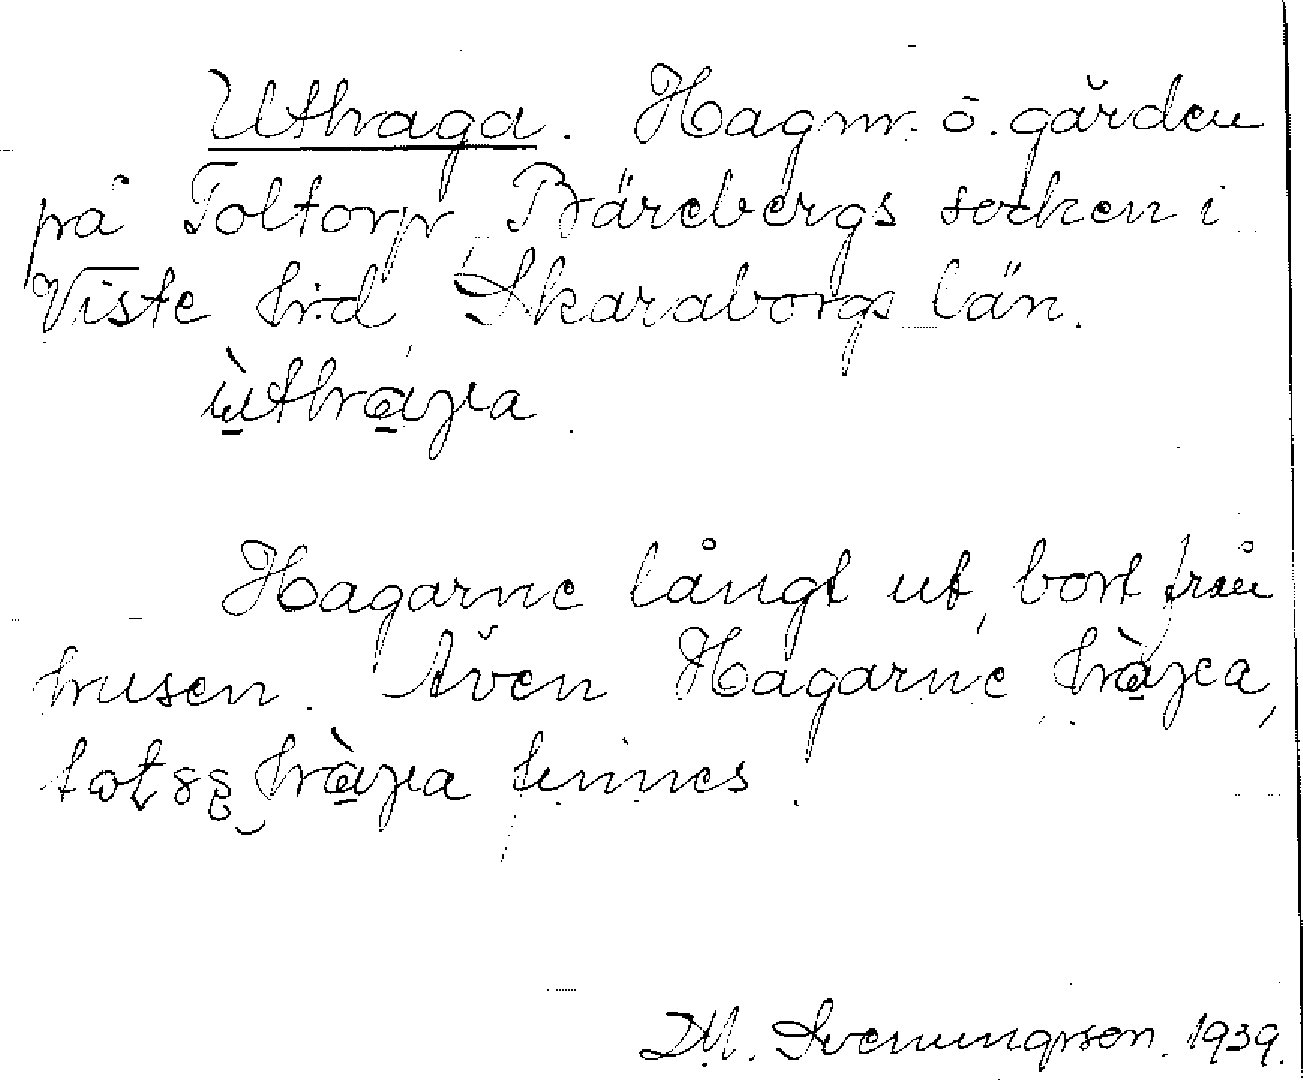 Uthaga. Hagmr. ö. gården
på Toltorp, Bärebergs socken i
Viste hd, Skaraborgs län.
Hagarne långt ut, bort från
husen. Även Hagarne
finnes.
D.M. Svenungsson. 1939.